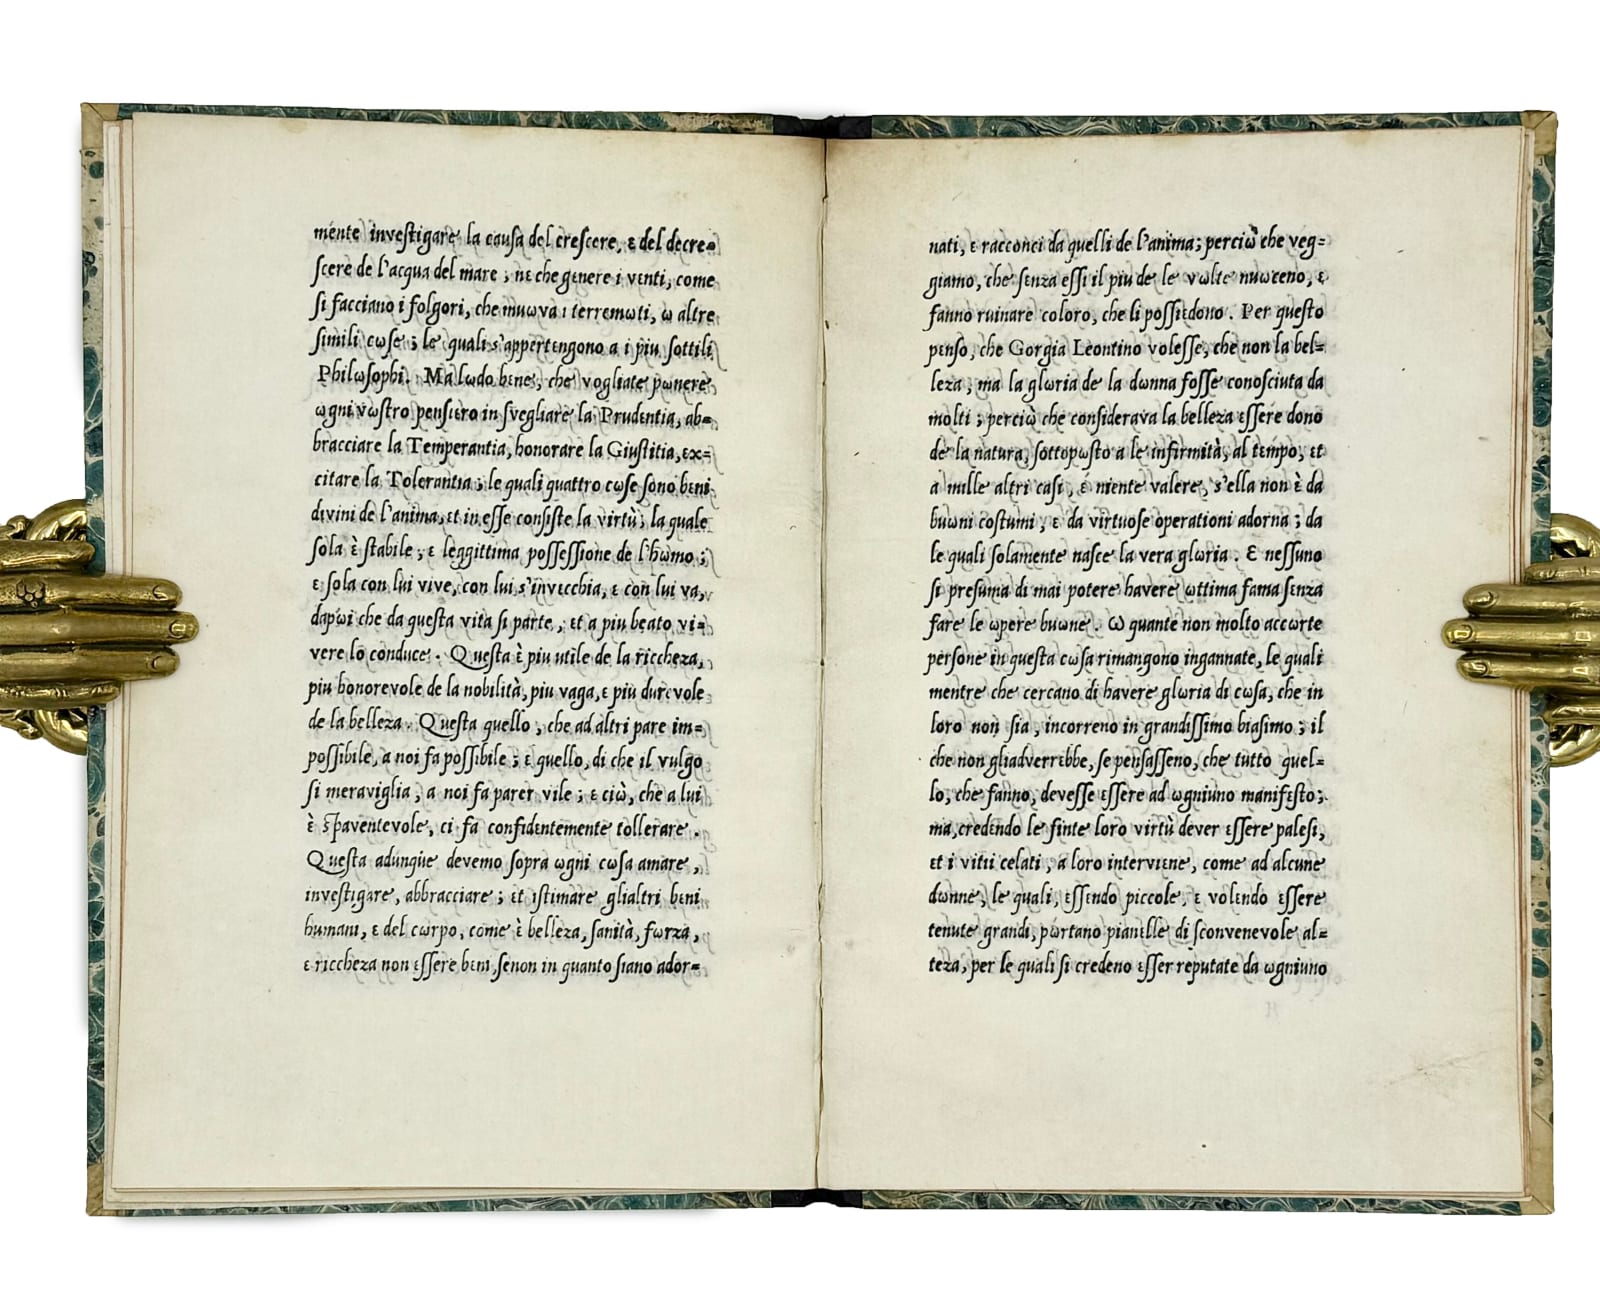 mente inveſtigare la cauſa del creſcere, ε del decre=
ſcere de l'acqua del mare; nε che gεnere i vεnti, come
ſi facciano i folgori, che muωva i terremωti, ω altre
ſimili cωſe; le quali s'appertεngono a i piu ſottili
Philωſophi. Ma lωdo bεne, che vogliate pωnere
ωgni vωſtro penſiεro in ſvegliare la Prudεntia, ab=
bracciare la Temperantia, honorare la Giuſtitia, εx=
citare la Tolerantia; le quali quattro cωſe ſono bεni
divini de l'anima, εt in eſſe conſiſte la virtù; la quale
ſola ὲ ſtabile, ε leggittima poſſeſſione de l'hωmo;
ε ſola con lui vive, con lui s'invεcchia, ε con lui va,
dapωi che da queſta vita ſi parte, εt a piu beato vi=
vere lo conduce. Queſta ὲ piu utile de la riccheza,
piu honorevole de la nobilità, piu vaga, ε piu durevole
de la belleza. Queſta quello, che ad altri pare im=
poſſibile, a noi fa poſſibile; ε quello, di che il vulgo
ſi meraviglia, a noi fa parer vile; ε ciὼ, che a lui
ὲ ſpaventevole, ci fa confidεntemente tollerare.
Queſta adunque devemo ſopra ωgni cωſa amare,
inveſtigare, abbracciare; εt iſtimare glialtri bεni
humani, ε del cωrpo, come ὲ belleza, ſanità, fωrza,
ε riccheza non εſſere bεni, ſenon in quanto ſiano ador=
nati, ε racconci da quelli de l'anima; perciὼ che veg=
giamo, che ſenza eſſi il piu de le vωlte nuωceno, ε
fanno ruinare coloro, che li poſſiεdono. Per queſto
pεnſo, che Gorgia Leontino voleſſe, che non la bel=
leza, ma la glωria de la dωnna foſſe conoſciuta da
molti; perciὼ che conſiderava la belleza εſſere dono
de la natura, ſottopωſto a le infirmità, al tεmpo, εt
a mille altri caſi, ε niεnte valere, s'ella non ὲ da
buωni coſtumi, ε da virtuoſe operationi adorna; da
le quali ſolamente naſce la vera glωria. Ɛ neſſuno
ſi preſuma di mai potere havere ωttima fama ſenza
fare le ωpere buωne. Ѡ quante non molto accωrte
perſone in queſta cωſa rimangono ingannate, le quali
mentre che cercano di havere glωria di cωſa, che in
loro non ſia, incorreno in grandiſſimo biaſimo; il
che non gliadverrεbbe, ſe penſaſſeno, che tutto quel=
lo, che fanno, deveſſe εſſere ad ωgniuno manifεſto;
ma, credεndo le finte loro virtù dever εſſere paleſi,
εt i vitii celati, a loro interviεne, come ad alcune
dωnne, le quali, εſſεndo piccole, ε volεndo εſſere
tenute grandi, pωrtano pianεlle di ſconvenevole al=
teza, per le quali ſi credeno εſſer reputate da ωgniuno